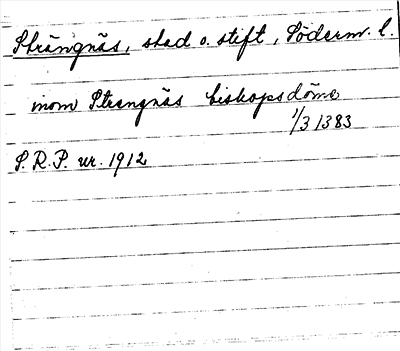 Strängnäs, stad o. stift, Söderm. l.
inom Strengnäs biskopsdöme
1/3 1383
S.R.P. nr. 1912